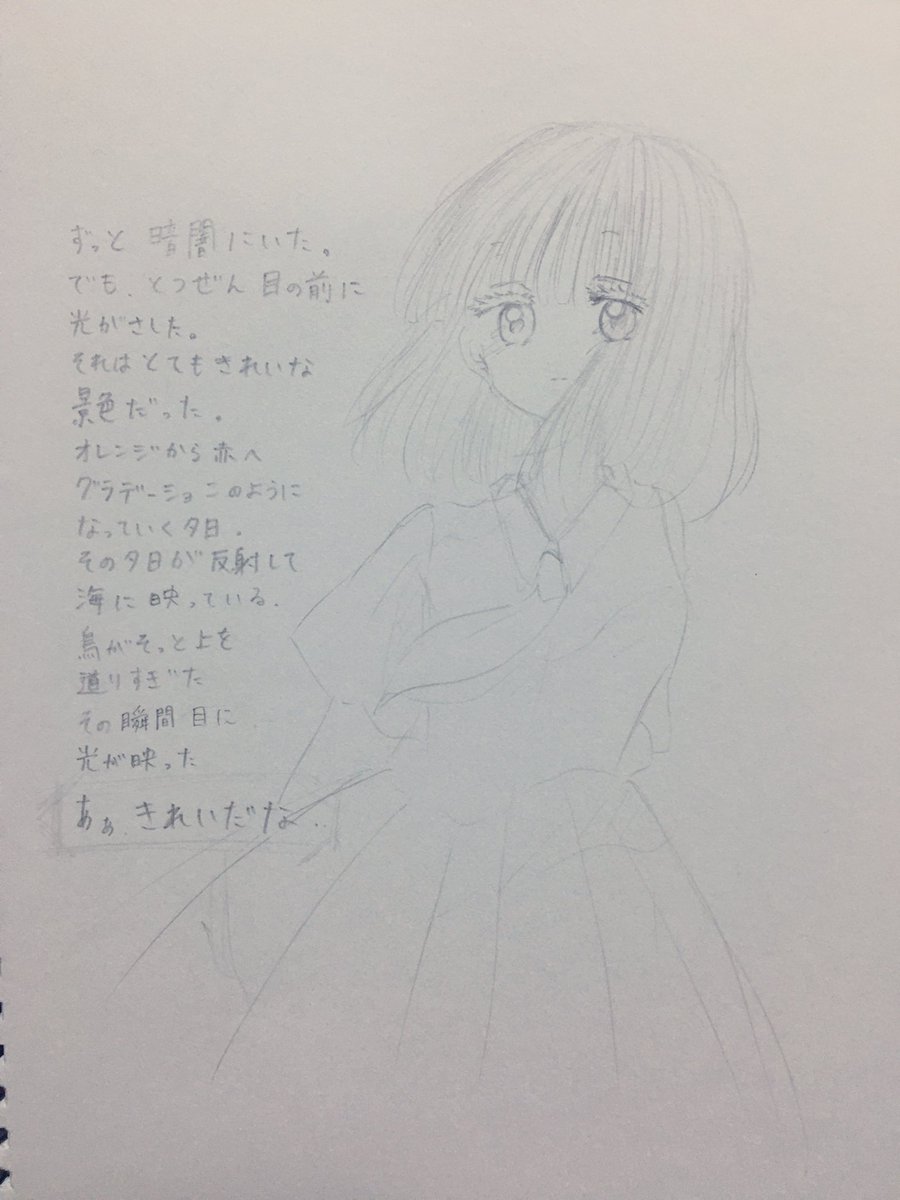 ずっと 暗闇にいた。
でも、とつぜん 目の前に
光がさした。
それはとてもきれいな
景色だった。
オレンジから赤へ
グラデーショこのように
なっていく夕日.
その夕日が反射して
海に映っている.
鳥がそっと上を
通りすぎた
その瞬間 目に
光が映った
あぁ、きれいだな..